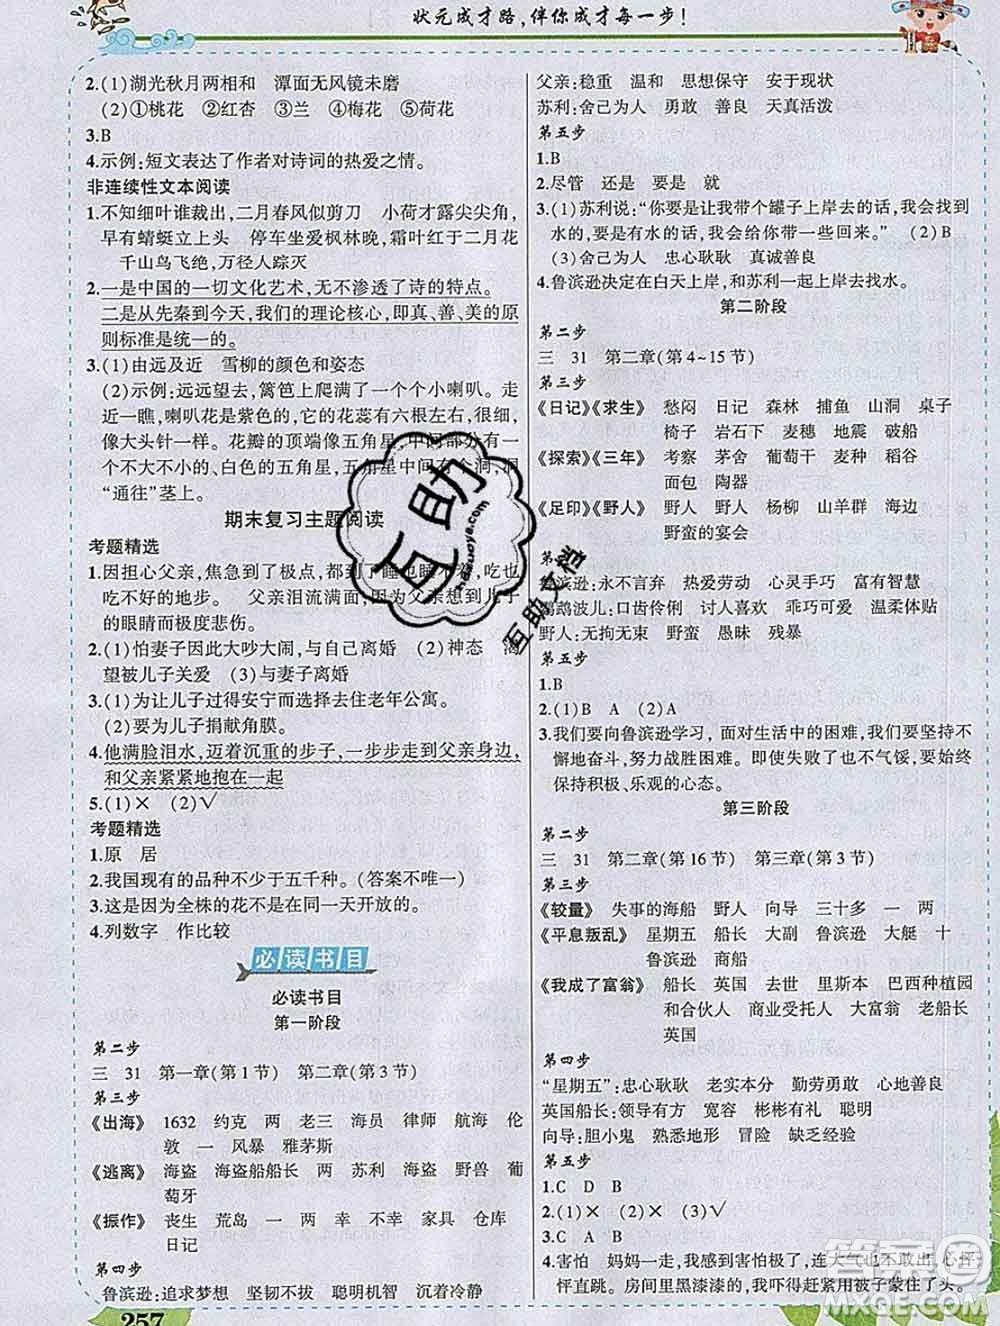 状元成才路,伴你成才每一步!
2.(1)湖光秋月两相和 潭面无风镜未磨
(2)①桃花 ②红杏 ③兰 ④梅花 ⑤荷花
3.B
4.示例:短文表达了作者对诗词的热爱之情。
非连续性文本阅读
1.不知细叶谁裁出,二月春风似剪刀 小荷才露尖尖角,
早有蜻蜓立上头 停车坐爱枫林晚,霜叶红于二月花
千山鸟飞绝,万径人踪灭
2.一是中国的一切文化艺术,无不渗透了诗的特点。
二是从先秦到今天,我们的理论核心,即真、善、美的原
则标准是统一的。
3.(1)由远及近 雪柳的颜色和姿态
(2)示例:远远望去,篱笆上爬满了一个个小喇叭。走
近一瞧,喇叭花是紫色的,它的花蕊有六根,细细的,
像大头针一样。花瓣的顶端像五角星,中间部分有一
个不大不小的、白色的五角星,五角星中间有个洞,洞
“通往”茎上。
期末复习主题阅读
考题精选
1.因担心父亲,焦急到了极点,都到了睡也睡不着,吃也
吃不好的地步。 父亲泪流满面,父亲看到儿子
的眼睛而极度悲伤。
2.(1)怕妻子因此大吵大闹,与自己离婚 (2)神态 渴
望被儿子关爱 (3)与妻子离婚
3.(1)为让儿子过得安宁而选择去住老年公寓。
(2)要为儿子捐献角膜。
4.他满脸泪水,迈着沉重的步子,一步步走到父亲身边,
和父亲紧紧地抱在一起
5.(1)× (2)√
考题精选
1.原 居
2.我国现有的品种不少于五千种。(答案不唯一)
3.这是因为全株的花不是在同一天开放的。
4.列数字 作比较
必读书目
必读书目
第一阶段
第二步
三 31 第一章(第1节) 第二章(第3节)
第三步
《出海》 1632 约克 两 老三 海员 律师 航海 伦
敦 一 风暴 雅茅斯
《逃离》 海盗 海盗船船长 两 苏利 海盗 野兽 葡
萄牙
《振作》 丧生 荒岛 一 两 幸 不幸 家具 仓库
日记
第四步
鲁滨逊:追求梦想 坚韧不拔 聪明机智 沉着冷静
父亲:稳重 温和 思想保守 安于现状
苏利:舍己为人 勇敢 善良 天真活泼
第五步
1.B
2.尽管 还是 要是 就
3.(1)苏利说:“你要是让我带个罐子上岸去的话,我会找到
水的,要是有水的话,我会给你带一些回来。” (2)B
(3)舍己为人 忠心耿耿 真诚善良
4.鲁滨逊决定在白天上岸,和苏利一起上岸去找水。
第二阶段
第二步
三 31 第二章(第4~15节)
第三步
《日记》《求生》 愁闷 日记 森林 捕鱼 山洞 桌子
椅子 岩石下 麦穗 地震 破船
《探索》《三年》 考察 茅舍 葡萄干 麦种 稻谷
面包 陶器
《足印》《野人》 野人 野人 杨柳 山羊群 海边
野蛮的宴会
第四步
鲁滨逊:永不言弃 热爱劳动 心灵手巧 富有智慧
鹦鹉波儿:口齿伶俐 讨人喜欢 乖巧可爱 温柔体贴
野人:无拘无束 野蛮 愚昧 残暴
第五步
1.B
2.(1)B A (2)A
3.我们要向鲁滨逊学习,面对生活中的困难,我们要坚持不
懈地奋斗,努力战胜困难。即使失败了也不气馁,要始终
保持积极、乐观的心态。
第三阶段
第二步
三 31 第二章(第16节) 第三章(第3节)
第三步
《较量》 失事的海船 野人 向导 三十多 一 两
《平息叛乱》 星期五 船长 大副 鲁滨逊 大艇 十
鲁滨逊 商船
《我成了富翁》 船长 英国 去世 里斯本 巴西种植园
和合伙人 商业受托人 大富翁 老船长
英国
第四步
“星期五”:忠心耿耿 老实本分 勤劳勇敢 心地善良
英国船长:领导有方 宽容 彬彬有礼 聪明
向导:胆小鬼 熟悉地形 冒险 缺乏经验
第五步
1.C D B
2.(1)× (2)× (3)√
3.C A B
4.害怕 妈妈一走,我感到害怕极了,连大气也不敢出,心怦
怦直跳。房间里黑漆漆的,我吓得赶紧用被子蒙住了头。
257
互助
hdzuoye.com
互助文档
答案圈